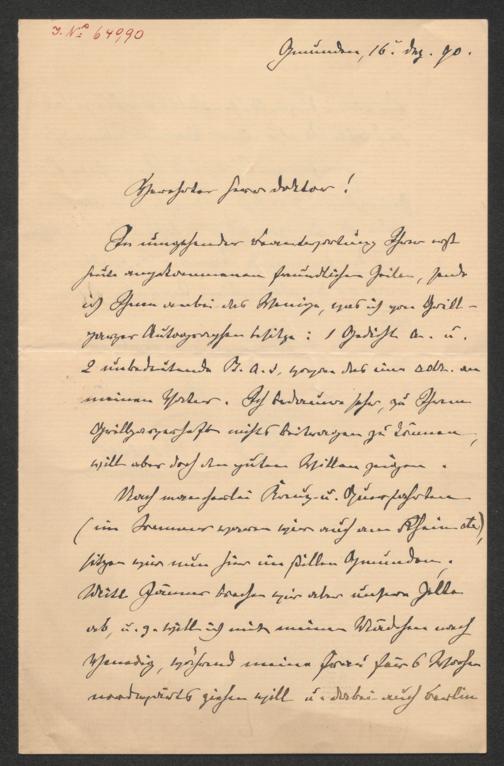 J. No 64990
Gmunden, 16. Dez. 90.
Verehrter Herr Doktor!
In umgehender Beantwortung Ihrer erst
heute angekommenen freundlichen Zeilen, sende
ich Ihnen anbei das Wenige, was ich von Grill-
parzer Autographen besitze: 1 Gedicht a. u.
2 unbedeutende B. a. s, wovon das eine adr. an
meinen Vater. Ich bedauere sehr, zu Ihrem
Grillparzerheft nichts beitragen zu können,
will aber doch den guten Willen zeigen.
Nach mancherlei Kreuz- u. Querfahrten
(im Sommer waren wir auch am Rhein etc),
sitzen wir nun hier im stillen Gmunden.
Mitte Jänner brechen wir aber unsere Zelte
ab, u. z. will ich mit meinen Mädchen nach
Venedig, während meine Frau für 6 Wochen
nordwärts ziehen will u. dabei auch Berlin